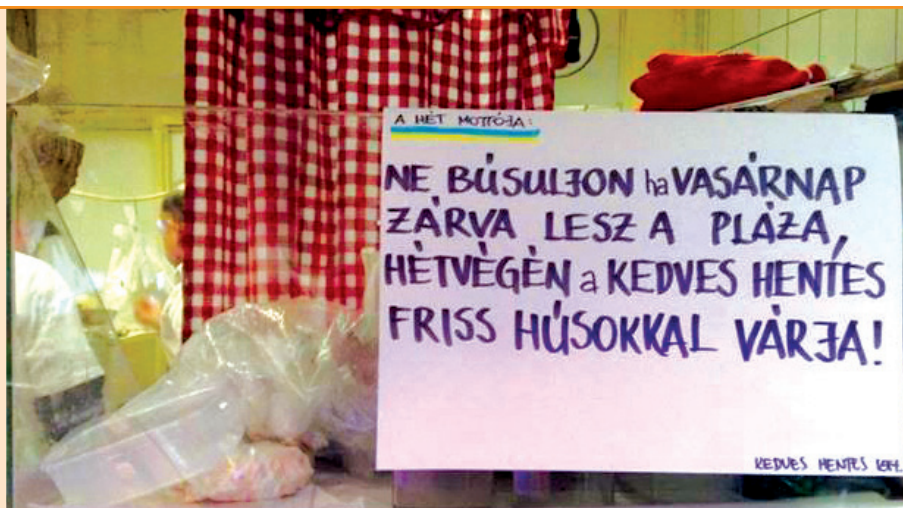 A HÉT MOTTÓJA:
NE BÚSULJON ha VASÁRNAP
ZÁRVA LESZ A PLÁZA,
HÈTVÈGÈN a KEDVES HENTES
FRISS HÚSOKKAL VÁRJA!
KEDVES HENTES